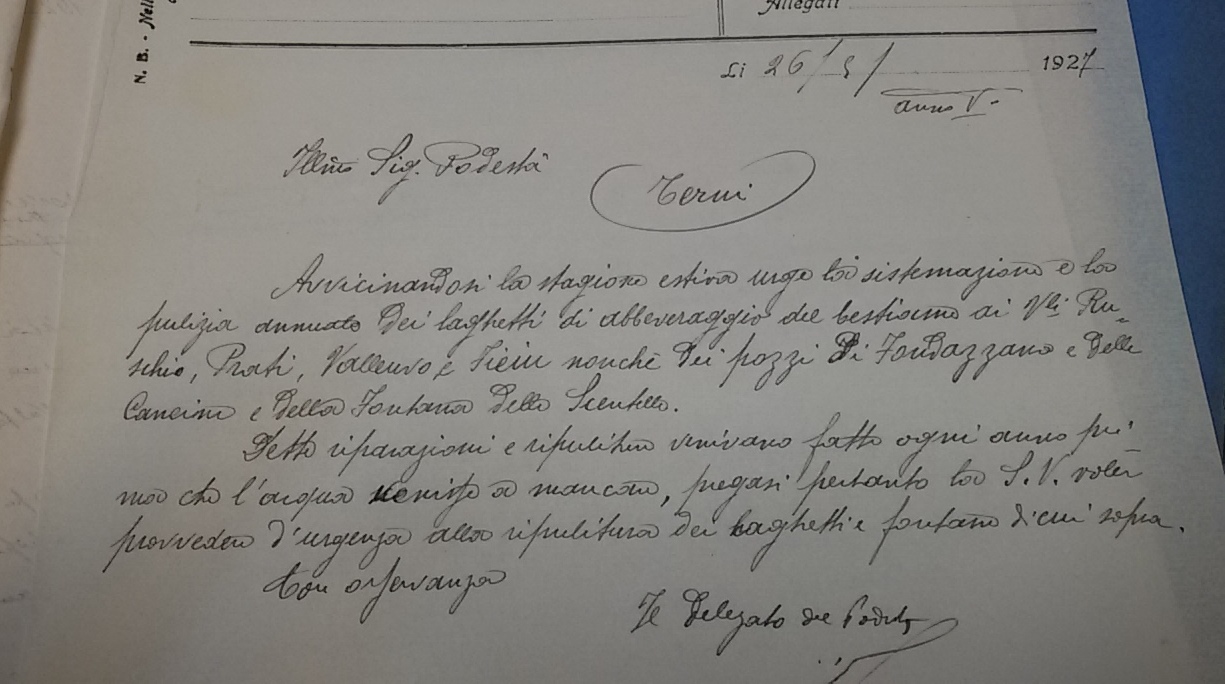 N. B. - Nell
Allegati
Li 26/5/ 1927
anno V.
Illmo Sig. Podestà
Terni
Avvicinandosi la stagione estiva urge la sistemazione e la
pulizia annuale dei laghetti di abbeveraggio del bestiame ai Vli Ru-
schio, Prati, Valleuvo e nonchè dei pozzi di e delle
e della Fontana dello
Dette riparazioni e ripuliture venivano fatte ogni anno pri-
ma che l'acqua venisse a mancare, pregasi pertanto la S.V. voler
provvedere d'urgenza alla ripulitura dei laghetti e fontane di cui sopra.
Con osservanza
Il Delegato del Podestà